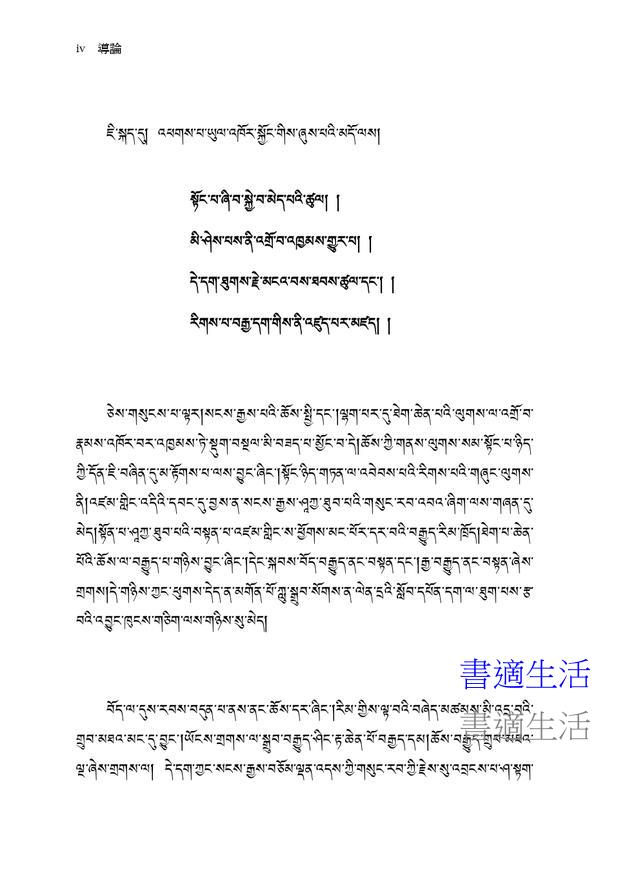 iv 導論
ཇི་སྐད་དུ། འཕགས་པ་ཡུལ་འཁོར་སྐྱོང་གིས་ཞུས་པའི་མདོ་ལས།
སྟོང་པ་ཞི་བ་སྐྱེ་བ་མེད་པའི་ཚུལ། །
མི་ཤེས་པས་ནི་འགྲོ་བ་འཁྱམས་གྱུར་པ། །
དེ་དག་ཐུགས་རྗེ་མངའ་བས་ཐབས་ཚུལ་དང་། །
རིགས་པ་བརྒྱ་དག་གིས་ནི་འཛུད་པར་མཛད། །
ཅེས་གསུངས་པ་ལྟར།སངས་རྒྱས་པའི་ཆོས་སྤྱི་དང་།ལྷག་པར་དུ་ཐེག་ཆེན་པའི་ལུགས་ལ་འགྲོ་བ་
རྣམས་འཁོར་བར་འཁྱམས་ཏེ་སྡུག་བསྔལ་མི་བཟད་པ་མྱོང་བ་དེ།ཆོས་ཀྱི་གནས་ལུགས་སམ་སྟོང་པ་ཉིད་
ཀྱི་དོན་ཇི་བཞིན་དུ་མ་རྟོགས་པ་ལས་བྱུང་ཞིང་།སྟོང་ཉིད་གཏན་ལ་འབེབས་པའི་རིགས་པའི་གཞུང་ལུགས་
ནི།འཛམ་གླིང་འདིའི་དབང་དུ་བྱས་ན་སངས་རྒྱས་ཤཱཀྱ་ཐུབ་པའི་གསུང་རབ་འབའ་ཞིག་ལས་གཞན་དུ་
མེད།སྟོན་པ་ཤཱཀྱ་ཐུབ་པའི་བསྟན་པ་འཛམ་གླིང་ས་ཕྱོགས་མང་པོར་དར་བའི་བརྒྱུད་རིམ་ཁྲོད།ཐེག་པ་ཆེན་
པོའི་ཆོས་ལ་བརྒྱུད་པ་གཉིས་བྱུང་ཞིང་།དེང་སྐབས་བོད་བརྒྱུད་ནང་བསྟན་དང་།རྒྱ་བརྒྱུད་ནང་བསྟན་ཞེས་
གྲགས།དེ་གཉིས་ཀྱང་ཕུགས་དེད་ན་མགོན་པོ་ཀླུ་སྒྲུབ་སོགས་ན་ལེན་དྲའི་སློབ་དཔོན་དག་ལ་ཐུག་པས་རྩ་
བའི་འབྱུང་ཁུངས་གཅིག་ལས་གཉིས་སུ་མེད།
書適生活
བོད་ལ་དུས་རབས་བདུན་པ་ནས་ནང་ཆོས་དར་ཞིང་།རིམ་གྱིས་ལྟ་བའི་བཞེད་མཚམས་མི་འདྲ་བའི་
書適生活
གྲུབ་མཐའ་མང་དུ་བྱུང་།ཡོངས་གྲགས་ལ་སྒྲུབ་བརྒྱུད་ཤིང་རྟ་ཆེན་པོ་བརྒྱད་དམ།ཆོས་བརྒྱུད་གྲུབ་མཐའ་
ལྔ་ཞེས་གྲགས་ལ། དེ་དག་ཀྱང་སངས་རྒྱས་བཅོམ་ལྡན་འདས་ཀྱི་གསུང་རབ་ཀྱི་རྗེས་སུ་འབྲངས་པ་ཤ་སྟག་